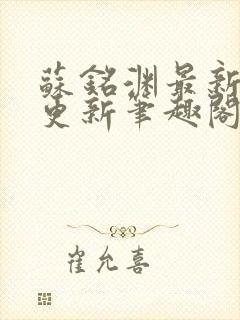 蘇銘淵最新
更新筆趣閣
崔允喜